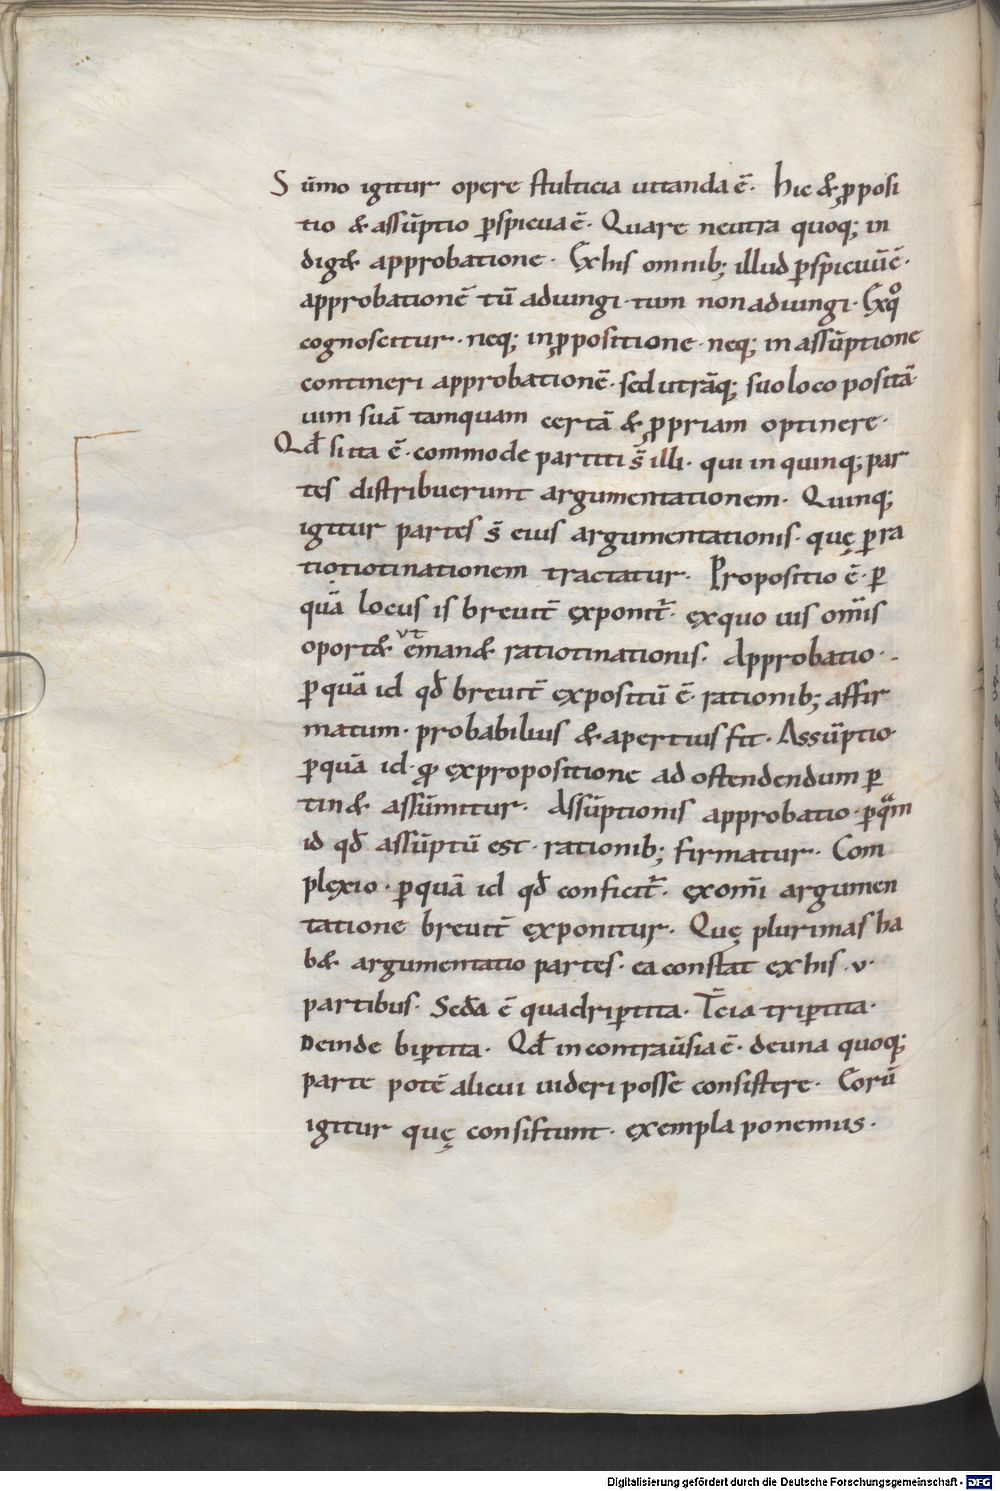 Sūmo igitur opere stulticia uitanda ē. Hic & ꝓposi
tio & assūptio ꝑspicua ē. Quare neutra quoq; in
dig& approbatione. Ex his omnib; illud ꝑspicuū ē.
approbationē tū adiungi. tum non adiungi. Ex qͦ
cognoscitur. neq; in ꝓpositione. neq; in assūptione
contineri approbationē. sed utrāq; suo loco positā.
uim suā tamquam certā & ꝓpriam optinere.
Qd̄ si ita ē. commode partiti s̄ illi. qui in quinq; par
tes distribuerunt argumentationem. Quinq;
igitur partes s̄ eius argumentationis. quę ꝑ ra
tiotiotinationem tractatur. Propositio ē. ꝑ
quā locus is breuit̄ exponit̄. ex quo uis om̄is
oport& ut eman& ratiotinationis. Approbatio.
ꝑ quā id qd̄ breuit̄ expositū ē. rationib; affir
matum. probabilius & apertius fit. Assūptio
ꝑ quā id. ꝙ ex propositione ad ostendendum ꝑ
tin& assūmitur. Assūptionis approbatio. ꝑ quam
id qd̄ assūptū est. rationib; firmatur. Com
plexio. ꝑ quā id qd̄ conficit̄. ex om̄i argumen
tatione breuit̄ exponitur. Quę plurimas ha
b& argumentatio partes. ea constat ex his .v.
partibus. Sed̄a ē quadriꝑtita. T̄cia triꝑtita.
Deinde biꝑtita. Qd̄ in contrau̅sia ē. de una quoq;
parte potē alicui uideri posse consistere. Eorū
igitur quę consistunt. exempla ponemus.
Digitalisierung gefördert durch die Deutsche Forschungsgemeinschaft - DFG